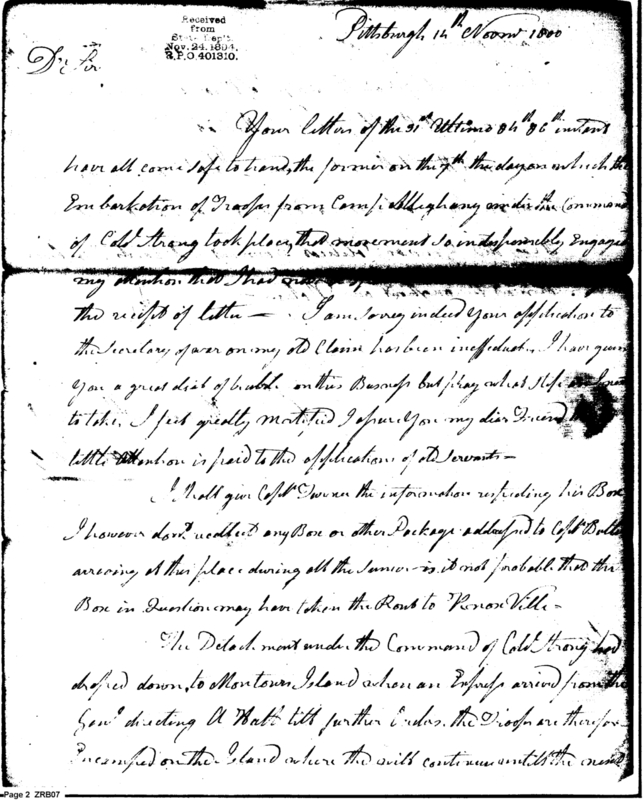 Received
from
State Dep't.
Nov. 24. 1894,
R.P.O. 401310.
Pittsburgh 14th Novmr 1800
Dr. Sir
Your letters of the 31st Ultimo & 4th & 6th instant
have all come safe to hand, the former on the 7th the day on which the
Embarkation of Troops from Camp Alleghany under the Command
of Colo. Strong took place, that movement so indispensibly Engaged
my attention that I had
the receipt of letter — I am sorry indeed your application to
the Secretary of war on my old Claim has been ineffectual. I have given
You a great deal of trouble on this Business but pray what steps
to take, I feel greatly Mortified I assure You my dear Friend
little attention is paid to the applications of old Servants —
I shall give Capt. Turner the information respecting his Box
I however don't recollect any Box or other Package addressed to Capt.
arriving at this place during all the Sumer is it not probable that the
Box in Question may have taken the Rout to Knox Ville —
The Detachment under the Command of Colo. Strong had
droped down to Montours Island when an Express arrived from the
Genl. directing A Halt till further Orders. the Troops are therefore
Encamped on the Island where the will continue untill the
Page 2 ZRB07